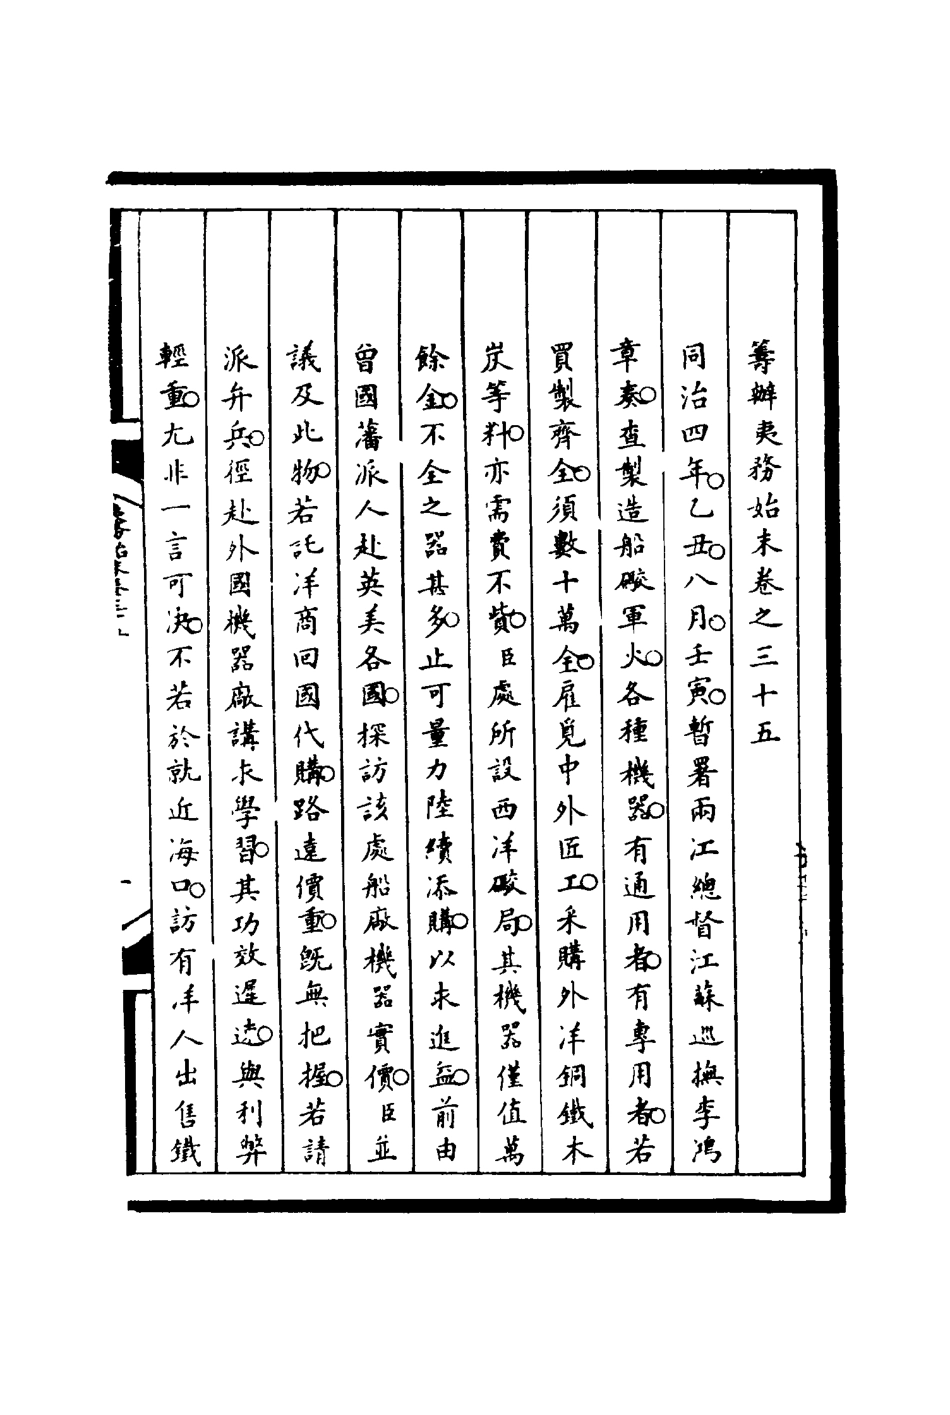 籌辦夷務始末卷之三十五
同治四年。乙丑。八月。壬寅。暫署兩江總督江蘇巡撫李鴻
章奏。查製造船礮軍火。各種機器。有通用者。有專用者。若
買製齊全。須數十萬金。雇覓中外匠工。采購外洋銅鐵木
炭等料。亦需費不貲。臣處所設西洋礮局。其機器僅值萬
餘金。不全之器甚多。止可量力陸續添購。以求進益。前由
曾國藩派人赴英美各國。探訪該處船廠機器實價。臣並
議及此物。若託洋商回國代購。路遠價重。旣無把握。若請
派弁兵。徑赴外國機器廠講求學習。其功效遲速。與利弊
輕重。尤非一言可决。不若於就近海口。訪有洋人出售鐵